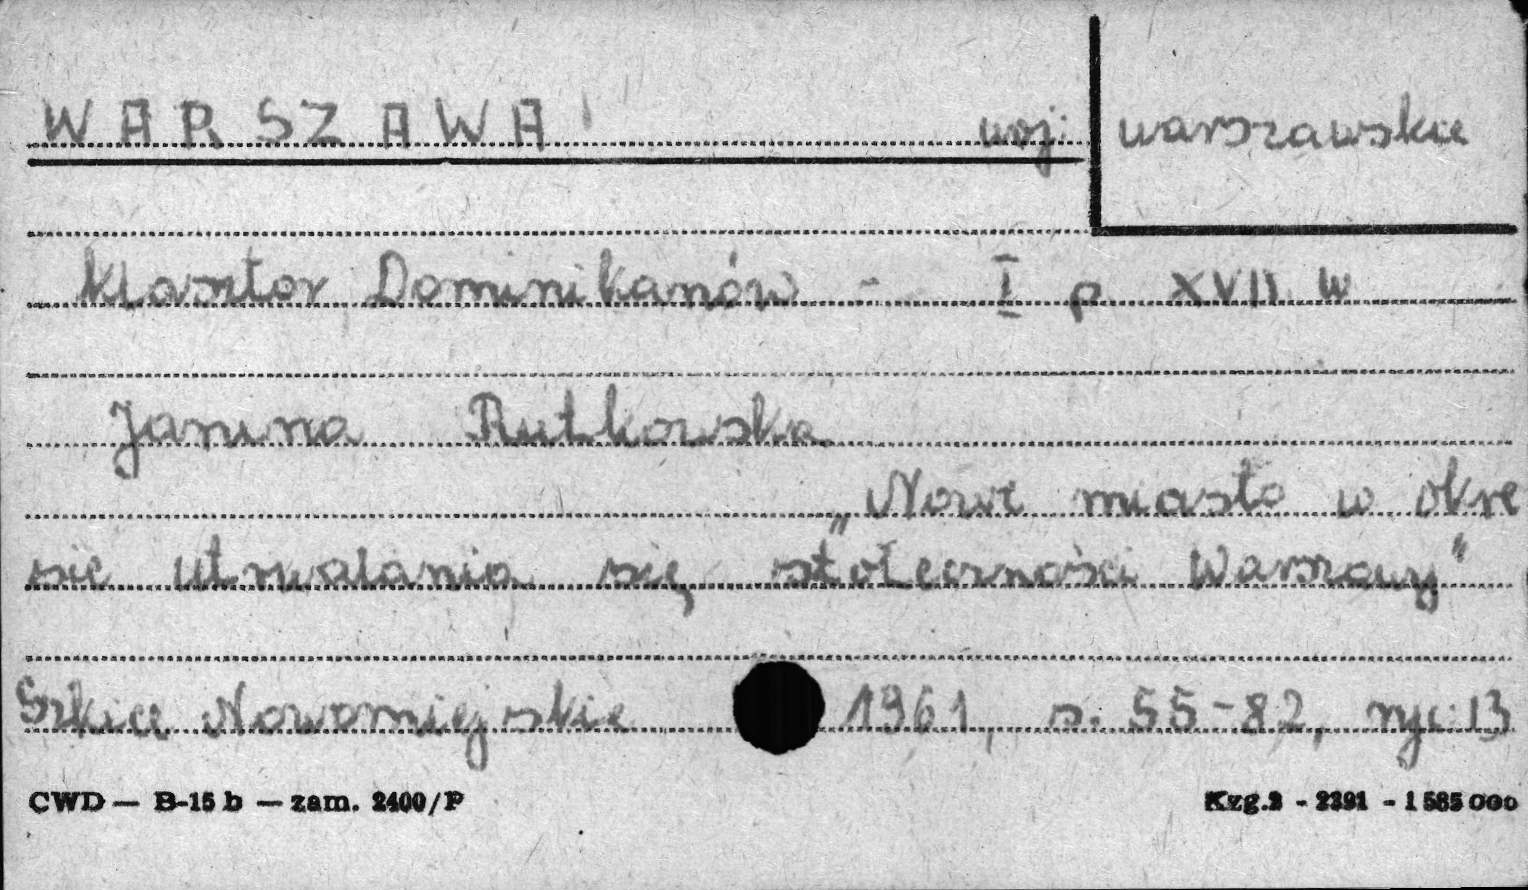 WARSZAWA woj: warszawskie
Klasztor Dominikanów - I p XVII w
Janina Rutkowska
„Nowe miasto w okre
sie utrwalania się stołeczności Warszawy"
Szkice Nowomiejskie 1961, s. 55-82, ryc. 13
CWD — B-15 b — zam. 2400/P Kzg.2 - 2391 - 1 585 000